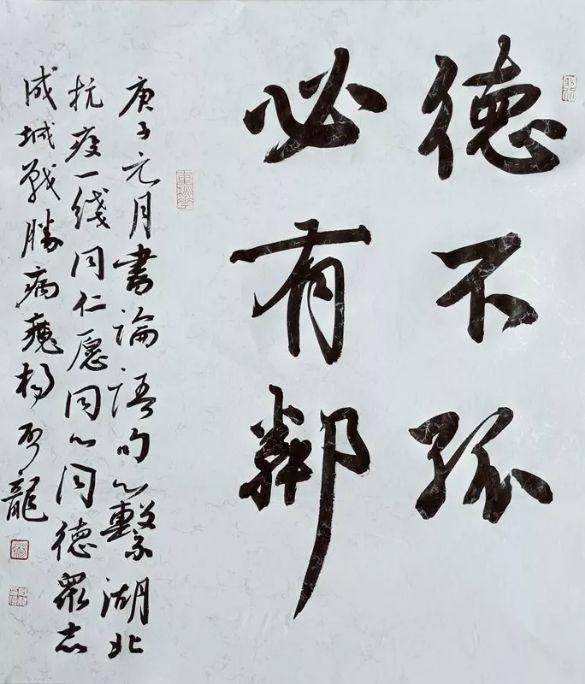 德不孤
必有鄰
庚子元月書論語句心繫湖北
抗疫一线同仁愿同心同德眾志
成城戰勝病魔杨 龍